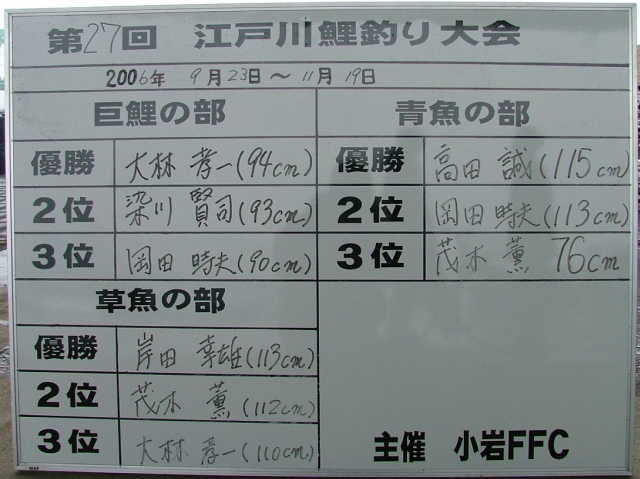 第27回 江戸川鯉釣り大会
2006年 9月23日～11月19日
巨鯉の部
優勝 大林 孝一(94cm)
2位 染川 賢司(93cm)
3位 岡田 時夫(90cm)
青魚の部
優勝 高田 誠(115cm)
2位 岡田 時夫(113cm)
3位 茂木 薫 76cm
草魚の部
優勝 岸田 幸雄(113cm)
2位 茂木 薫(112cm)
3位 大林 孝一(110cm)
主催 小岩FFC